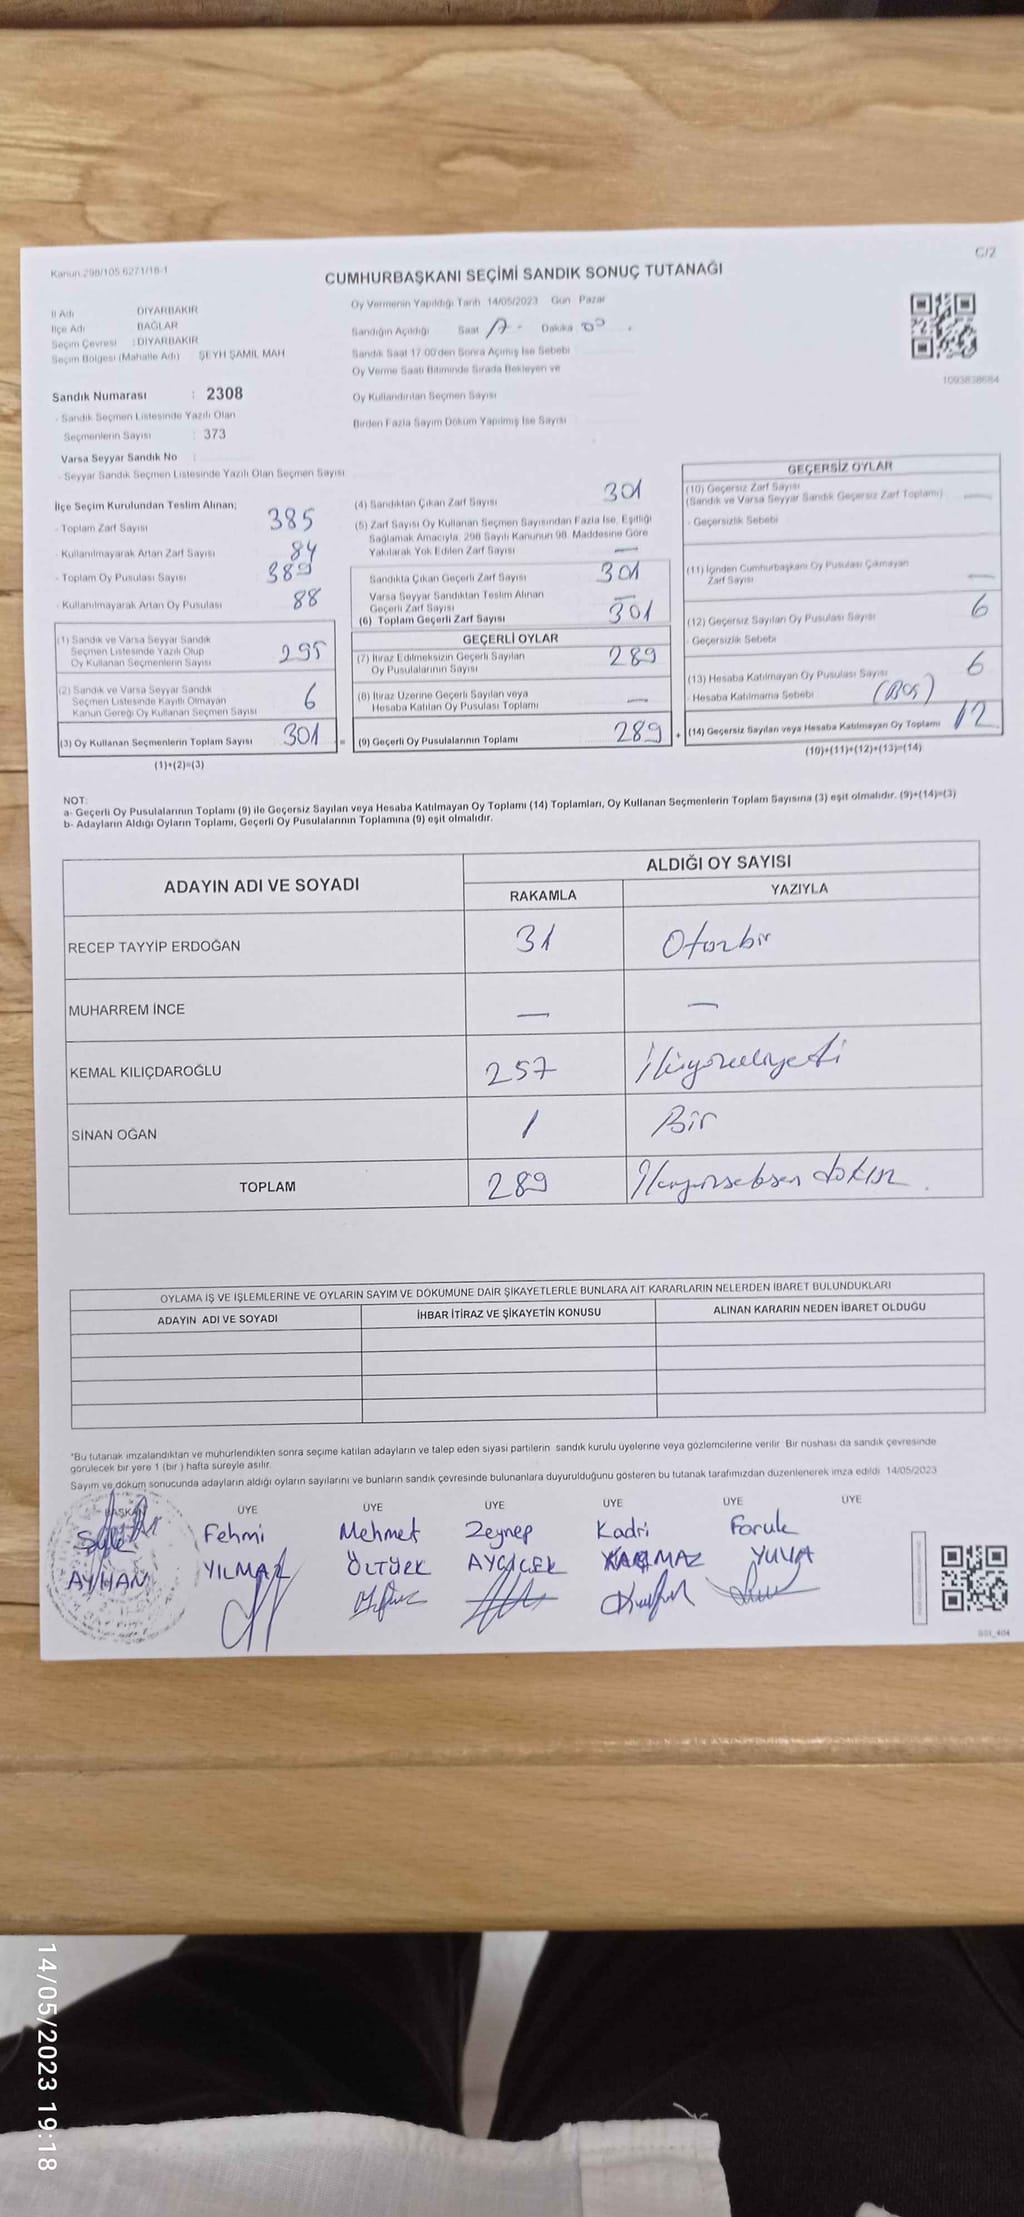 Kanun:298/105 6271/18-1
C/2
CUMHURBAŞKANI SEÇİMİ SANDIK SONUÇ TUTANAĞI
İl Adı DİYARBAKIR
İlçe Adı BAĞLAR
Seçim Çevresi : DİYARBAKIR
Seçim Bölgesi (Mahalle Adı) ŞEYH ŞAMİL MAH
Oy Vermenin Yapıldığı Tarih 14/05/2023 Gün Pazar
Sandığın Açıldığı Saat 17 - Dakika 00
Sandık Saat 17:00'den Sonra Açılmış İse Sebebi
Oy Verme Saati Bitiminde Sırada Bekleyen ve
Oy Kullandırılan Seçmen Sayısı
Birden Fazla Sayım Döküm Yapılmış İse Sayısı
1093838684
Sandık Numarası : 2308
- Sandık Seçmen Listesinde Yazılı Olan
Seçmenlerin Sayısı : 373
Varsa Seyyar Sandık No :
- Seyyar Sandık Seçmen Listesinde Yazılı Olan Seçmen Sayısı
İlçe Seçim Kurulundan Teslim Alınan;
- Toplam Zarf Sayısı 385
- Kullanılmayarak Artan Zarf Sayısı 84
- Toplam Oy Pusulası Sayısı 389
- Kullanılmayarak Artan Oy Pusulası 88
(1) Sandık ve Varsa Seyyar Sandık
Seçmen Listesinde Yazılı Olup
Oy Kullanan Seçmenlerin Sayısı 295
(2) Sandık ve Varsa Seyyar Sandık
Seçmen Listesinde Kayıtlı Olmayan
Kanun Gereği Oy Kullanan Seçmen Sayısı 6
(3) Oy Kullanan Seçmenlerin Toplam Sayısı 301
(1)+(2)=(3)
(4) Sandıktan Çıkan Zarf Sayısı 301
(5) Zarf Sayısı Oy Kullanan Seçmen Sayısından Fazla İse, Eşitliği
Sağlamak Amacıyla, 298 Sayılı Kanunun 98. Maddesine Göre
Yakılarak Yok Edilen Zarf Sayısı —
Sandıkta Çıkan Geçerli Zarf Sayısı 301
Varsa Seyyar Sandıktan Teslim Alınan
Geçerli Zarf Sayısı —
(6) Toplam Geçerli Zarf Sayısı 301
GEÇERLİ OYLAR
(7) İtiraz Edilmeksizin Geçerli Sayılan
Oy Pusulalarının Sayısı 289
(8) İtiraz Üzerine Geçerli Sayılan veya
Hesaba Katılan Oy Pusulası Toplamı —
= (9) Geçerli Oy Pusulalarının Toplamı 289 +
GEÇERSİZ OYLAR
(10) Geçersiz Zarf Sayısı
(Sandık ve Varsa Seyyar Sandık Geçersiz Zarf Toplamı) —
- Geçersizlik Sebebi
(11) İçinden Cumhurbaşkanı Oy Pusulası Çıkmayan
Zarf Sayısı —
(12) Geçersiz Sayılan Oy Pusulası Sayısı 6
- Geçersizlik Sebebi
(13) Hesaba Katılmayan Oy Pusulası Sayısı 6
- Hesaba Katılmama Sebebi (Boş)
(14) Geçersiz Sayılan veya Hesaba Katılmayan Oy Toplamı 12
(10)+(11)+(12)+(13)=(14)
NOT:
a- Geçerli Oy Pusulalarının Toplamı (9) ile Geçersiz Sayılan veya Hesaba Katılmayan Oy Toplamı (14) Toplamları, Oy Kullanan Seçmenlerin Toplam Sayısına (3) eşit olmalıdır. (9)+(14)=(3)
b- Adayların Aldığı Oyların Toplamı, Geçerli Oy Pusulalarının Toplamına (9) eşit olmalıdır.
ADAYIN ADI VE SOYADI ALDIĞI OY SAYISI
RAKAMLA YAZIYLA
RECEP TAYYİP ERDOĞAN 31 Otuzbir
MUHARREM İNCE — —
KEMAL KILIÇDAROĞLU 257 İkiyüzelliyedi
SİNAN OĞAN 1 Bir
TOPLAM 289 İkiyüzseksen dokuz .
OYLAMA İŞ VE İŞLEMLERİNE VE OYLARIN SAYIM VE DÖKÜMÜNE DAİR ŞİKAYETLERLE BUNLARA AİT KARARLARIN NELERDEN İBARET BULUNDUKLARI
ADAYIN ADI VE SOYADI İHBAR İTİRAZ VE ŞİKAYETİN KONUSU ALINAN KARARIN NEDEN İBARET OLDUĞU
*Bu tutanak imzalandıktan ve mühürlendikten sonra seçime katılan adayların ve talep eden siyasi partilerin sandık kurulu üyelerine veya gözlemcilerine verilir. Bir nüshası da sandık çevresinde
görülecek bir yere 1 (bir ) hafta süreyle asılır.
Sayım ve döküm sonucunda adayların aldığı oyların sayılarını ve bunların sandık çevresinde bulunanlara duyurulduğunu gösteren bu tutanak tarafımızdan düzenlenerek imza edildi. 14/05/2023
BAŞKAN ÜYE ÜYE ÜYE ÜYE ÜYE ÜYE
Fehmi Mehmet Zeynep Kadri Faruk
AYHAN YILMAZ ÖZTÜRK AYÇİÇEK YUVA
14/05/2023 19:18